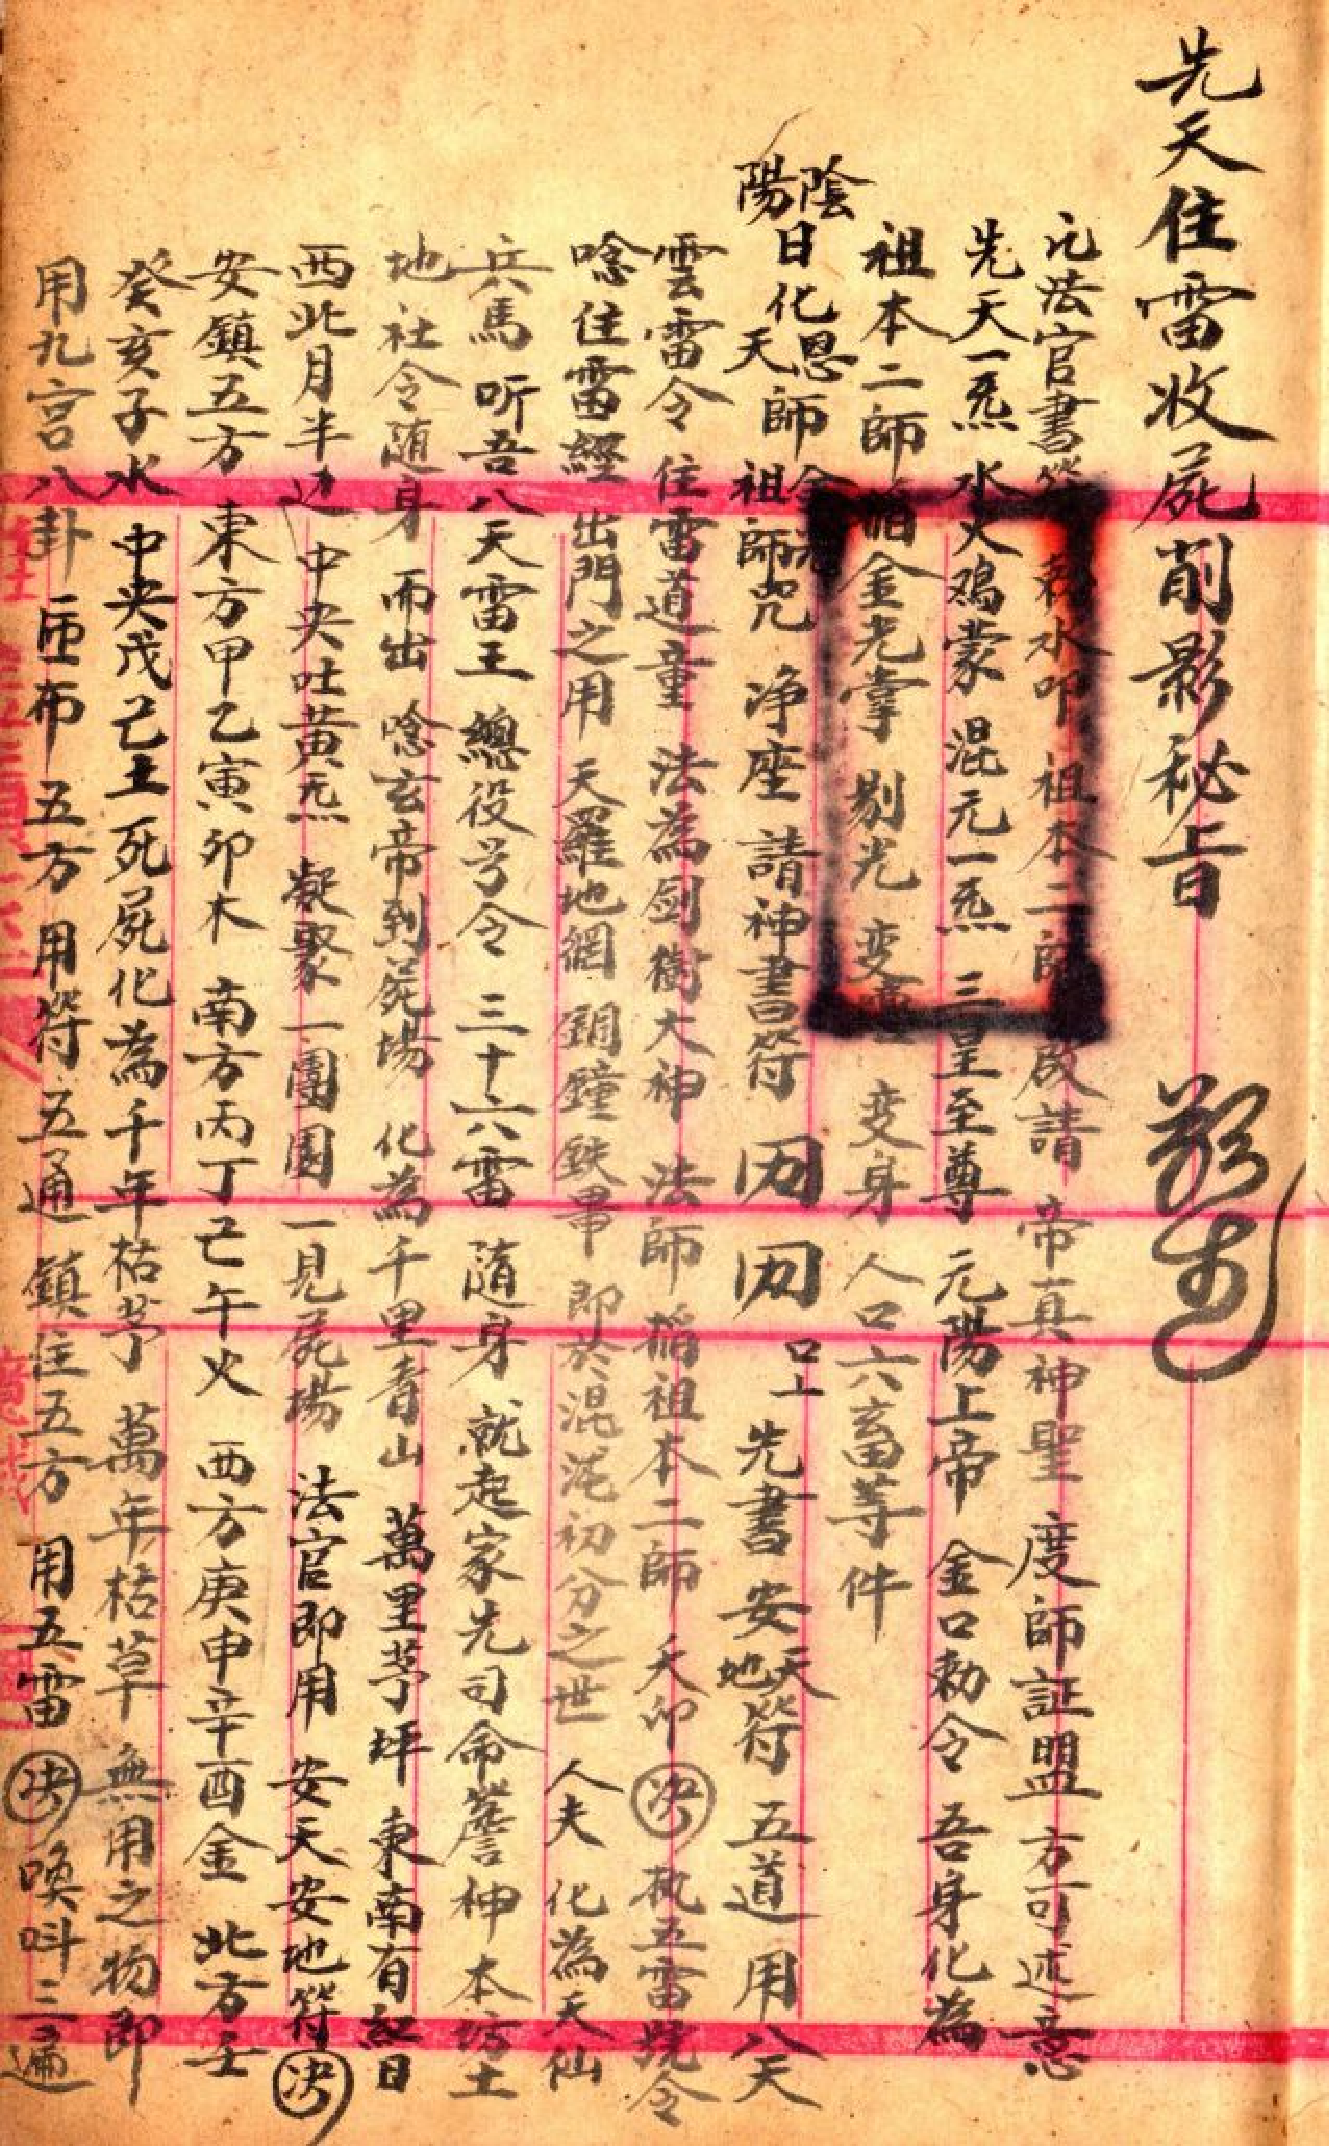 先天住雷收屍削影秘旨
凡法官書符 水叩 祖本二師 啟請 帝真神聖 度師証盟方可述意
先天一炁 水火鴻蒙 混元一炁 三皇至尊 元陽上帝 金口勅令 吾身化為
祖本二師 金光掌 剔光 变 变身 人口六畜等件
陰陽日化恩師 天師 祖師咒 净座 請神書符 先書 安天地符 五道 用八天
雲雷令 住雷道童 法為劍樹大神 法師 稱祖本二師 天卯 决 执五雷號令
唸住雷經 出門之用 天羅地網 銅鐘鉄 即於混沌初分之世 人夫 化為天仙
兵馬 听吾八天雷王 總役号令 三十六雷 隨身 就起家先司命 神本坊土
地社令随身 而出 唸玄帝到屍場 化為千里青山 萬里茅坪 東南有紅日
西北月半边 中央吐黄炁 凝聚一團圓 一見屍場 法官即用 安天安地符 决
安鎮五方 東方甲乙寅卯木 南方丙丁巳午火 西方庚申辛酉金 北方壬
癸亥子水 中央戊己土 死屍化為千年枯茅 萬年枯草 無用之物 即
用九宮八卦 布五方 用符五通 鎮住五方 用五雷 决 喚呌三遍